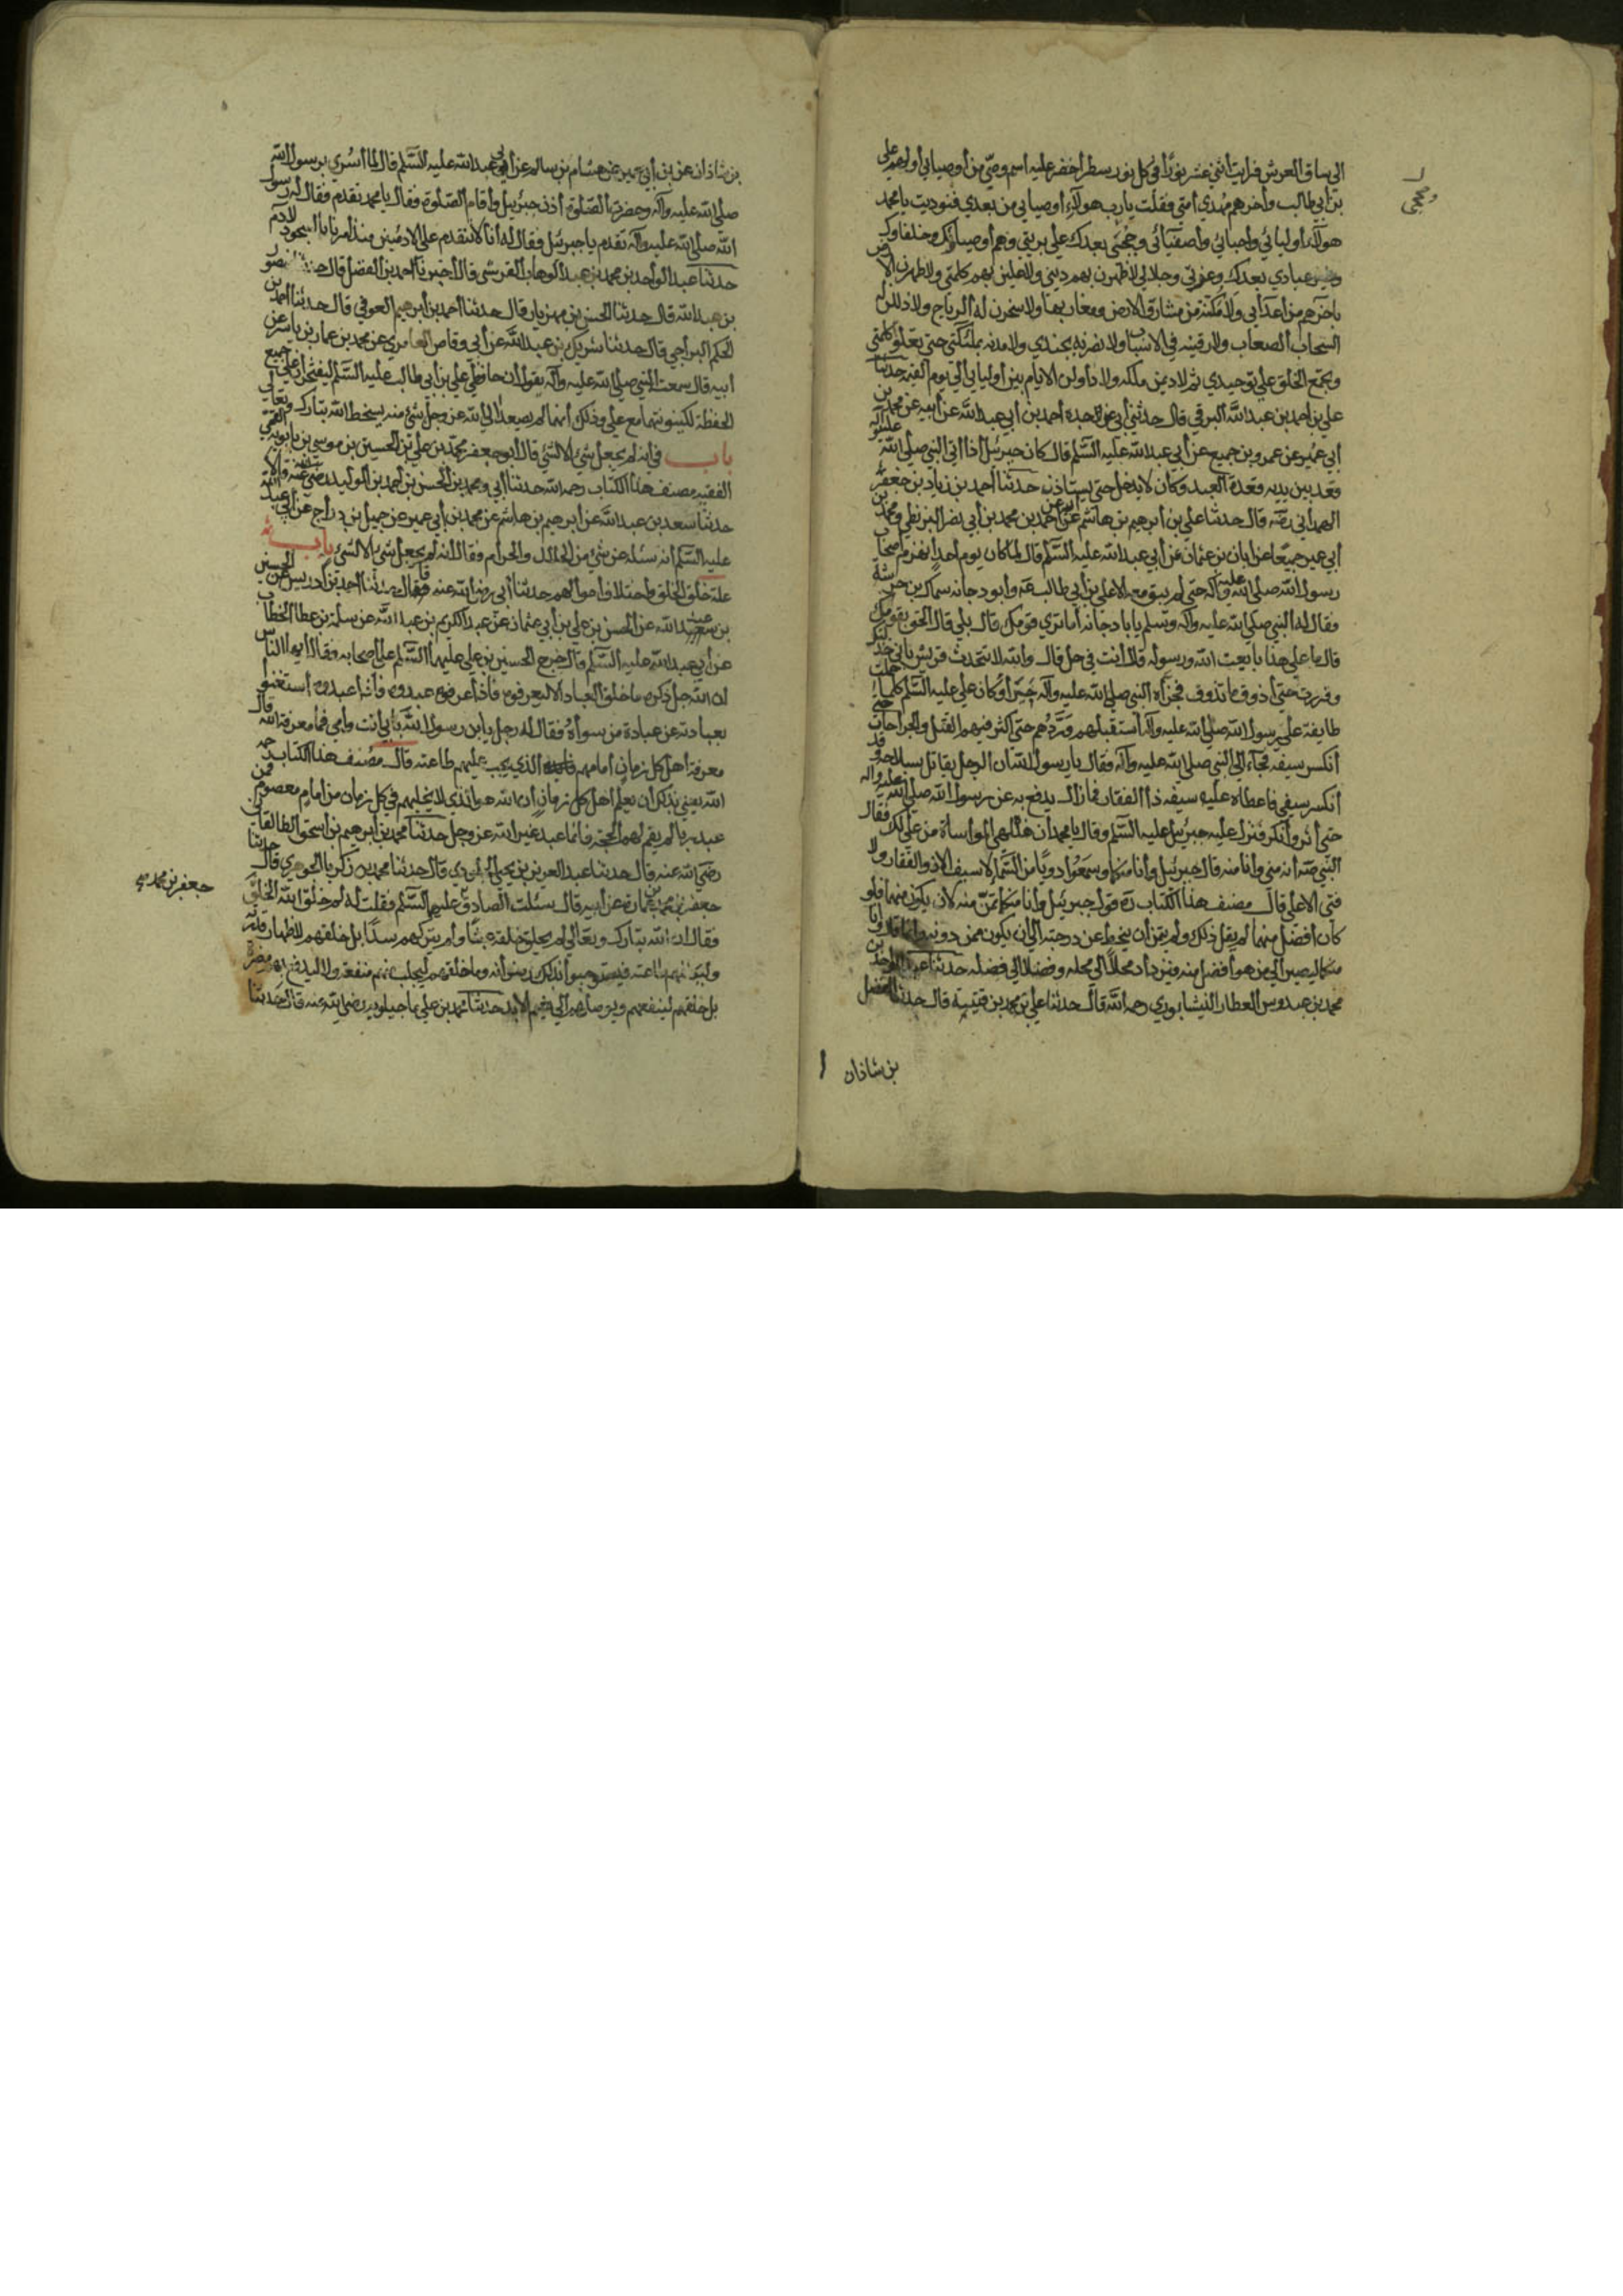 الى ساق العرش فرايت اثني عشر نورا في كل نور سطر أخضر عليه اسم وصي من أوصيائي أولهم علي
بن أبي طالب وأخرهم مهدي أمتي فقلت يا رب هولاء أوصيائي من بعدي فنوديت يا محمد
هولاء أوليائي واحبائي وأصفيائي وحججي بعدك على بريتي وهم أوصياؤك وخلفاؤك
وخير عبادي بعدك وعزتي وجلالي لاظهرن بهم ديني ولاعلين بهم كلمتي ولاطهرن الارض
باخرهم من أعدائي ولامكننه من مشارق الارض ومغاربها ولاسخرن له الرياح ولاذللن له
السحاب الصعاب ولارقينه في الاسباب ولانصرنه بجندي ولامدنه بملئكتي حتى تعلو كلمتي
ويجمع الخلق على توحيدي ثم لاديمن ملكه ولاداولن الايام بين أوليائي الى يوم القيمة حدثنا
علي بن أحمد بن عبد الله البرقي قال حدثني أبي عن جده أحمد بن أبي عبد الله عن أبيه عن محمد بن
أبي عمير عن عمرو بن جميع عن أبي عبد الله عليه السلم قال كان جبرئيل اذا اتى النبي صلى الله عليه وآله
قعد بين يديه وقعدة العبد وكان لا يدخل حتى يستاذنه حدثنا أحمد بن زياد بن جعفر
الهمداني رضه قال حدثنا علي بن أبرهيم بن هاشم عن أبيه عن أحمد بن محمد بن أبي نصر البزنطي ومحمد بن
أبي عمير جميعا عن أبان بن عثمان عن أبي عبد الله عليه السلم قال لما كان يوم أحد انهزم أصحاب
رسول الله صلى الله عليه وآله حتى لم يبق معه الا علي بن أبي طالب عم وأبو دجانه سماك بن خرشة
فقال له النبي صلى الله عليه وآله وسلم يا با دجانه أما ترى قومك قال بلى قال الحق بقومك
قال ما على هذا بايعت الله ورسوله قال أنت في حل قال والله لا تتحدث قريش باني خذلتك
وفررت حتى أذوق ما تذوق فجزاه النبي صلى الله عليه وآله خيرا وكان علي عليه السلم كلما حملت
طايفة على رسول الله صلى الله عليه وآله أستقبلهم وردهم حتى أكثر فيهم القتل والجراحات حتى
أنكسر سيفه فجآء الى النبي صلى الله عليه وآله فقال يا رسول الله ان الرجل يقاتل بسلاحه وقد
أنكسر سيفي فاعطاه عليه سيفه ذا الفقار فما زال يدفع به عن رسول الله صلى الله عليه وآله
حتى أثر وأنكر فنزل عليه جبرئيل عليه السلم وقال يا محمد أن هذا لهي المواساة من علي لك فقال
النبي صه أنه مني وأنا منه قال جبرئيل وأنا منكما وسمعوا دويا من السماء لا سيف الا ذو الفقار ولا
فتى الا علي قال مصنف هذا الكتاب ره قول جبرئيل وأنا منكما تمنى منه لان يكون منهما فلو
كان أفضل منهما لم يقل ذلك ولم يتمن أن ينحط عن درجته الى أن يكون ممن دونه وانما قال وأنا
منكما ليصير الى من هو أفضل منه فيزداد محلا الى محله وفضلا الى فضله حدثنا عبد الواحد بن
محمد بن عبدوس العطار النيشابوري رحمه الله قال حدثنا علي بن محمد بن قتيبة قال حدثنا الفضل
بن شاذان
بن شاذان عن بن أبي عمير عن هشام بن سالم عن أبي عبد الله عليه السلم قال لما أسري برسول الله
صلى الله عليه وآله وحضرت الصلوة أذن جبرئيل وأقام الصلوة فقال يا محمد تقدم فقال له رسول
الله صلى الله عليه وآله تقدم يا جبرئيل فقال له أنا لا نتقدم على الادميين منذ أمرنا بالسجود لادم
حدثنا عبد الواحد بن محمد بن عبد الوهاب القرشي قال أخبرنا أحمد بن الفضل قال منصور
بن عبد الله قال حدثنا الحسن بن مهزيار قال حدثنا احمد بن أبرهيم العوفي قال حدثنا احمد بن
الحكم البراجي قال حدثنا شريك بن عبد الله عن أبي وقاص العامري عن محمد بن عمار بن ياسر عن
أبيه قال سمعت النبي صلى الله عليه وآله يقول ان حافظي علي بن أبي طالب عليه السلم ليفتخران على جميع
الحفظة لكينونتهما مع علي وذلك أنهما لم يصعدا الى الله عز وجل بشئ منه يسخط الله تبارك وتعالى
باب في انه لم يجعل شئ الا لشئ قال أبو جعفر محمد بن علي بن الحسين بن موسى بن بابويه القمي
الفقيه مصنف هذا الكتاب رحمه الله حدثنا أبي ومحمد بن الحسن بن أحمد بن الوليد رضي الله عنه قالا
حدثنا سعد بن عبد الله عن أبرهيم بن هاشم عن محمد بن أبي عمير عن جميل بن دراج عن أبي عبد الله
عليه السلم أنه سئله عن شئ من الحلال والحرام فقال انه لم يجعل شئ الا لشئ باب
علة خلق الخلق واختلاف احوالهم حدثنا أبي رضي الله عنه قال حدثنا احمد بن أدريس عن الحسين
بن عبيد الله عن الحسن بن علي بن أبي عثمان عن عبد الكريم بن عبد الله عن سلمة بن عطا الخطاب
عن أبي عبد الله عليه السلم قال خرج الحسين بن علي عليهما السلم على أصحابه فقال أيها الناس
ان الله جل ذكره ما خلق العباد الا ليعرفوه فاذا عرفوه عبدوه فاذا عبدوه أستغنوا
بعبادته عن عبادة من سواه فقال له رجل يا بن رسول الله بابي انت وامي فما معرفة الله قال
معرفة أهل كل زمان امامهم الذي يجب عليهم طاعته قال مصنف هذا الكتاب رحمه
الله يعني بذلك أن يعلم أهل كل زمان أن الله هو الذي لا يخليهم في كل زمان من امام معصوم فمن
عبد ربا لم يقم لهم الحجة فانما عبد غير الله عز وجل حدثنا محمد بن أبرهيم بن اسحق الطالقاني
رضي الله عنه قال حدثنا عبد العزيز بن يحيى الجلودي قال حدثنا محمد بن زكريا الجوهري قال حدثنا
جعفر بن محمد بن عمارة عن أبيه قال سئلت الصادق عليهما السلم فقلت له لم خلق الله الخلق
جعفر بن محمد
فقال ان الله تبارك وتعالى لم يخلق خلقه عبثا ولم يتركهم سدا بل خلقهم لاظهار قدرته
وليكلفهم طاعته فيستوجبوا بذلك رضوانه وما خلقهم ليجلب منهم منفعة ولا ليدفع بهم مضرة
بل خلقهم لينفعهم ويوصلهم الى نعيم الابد حدثنا محمد بن علي ماجيلويه رضي الله عنه قال حدثنا